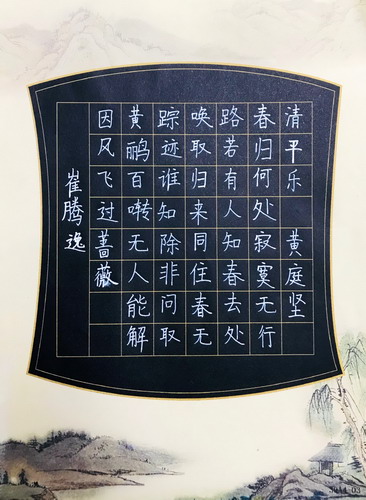 清平乐 黄庭坚
春归何处寂寞无行
路若有人知春去处
唤取归来同住春无
踪迹谁知除非问取
黄鹂百啭无人能解
因风飞过蔷薇
崔腾逸